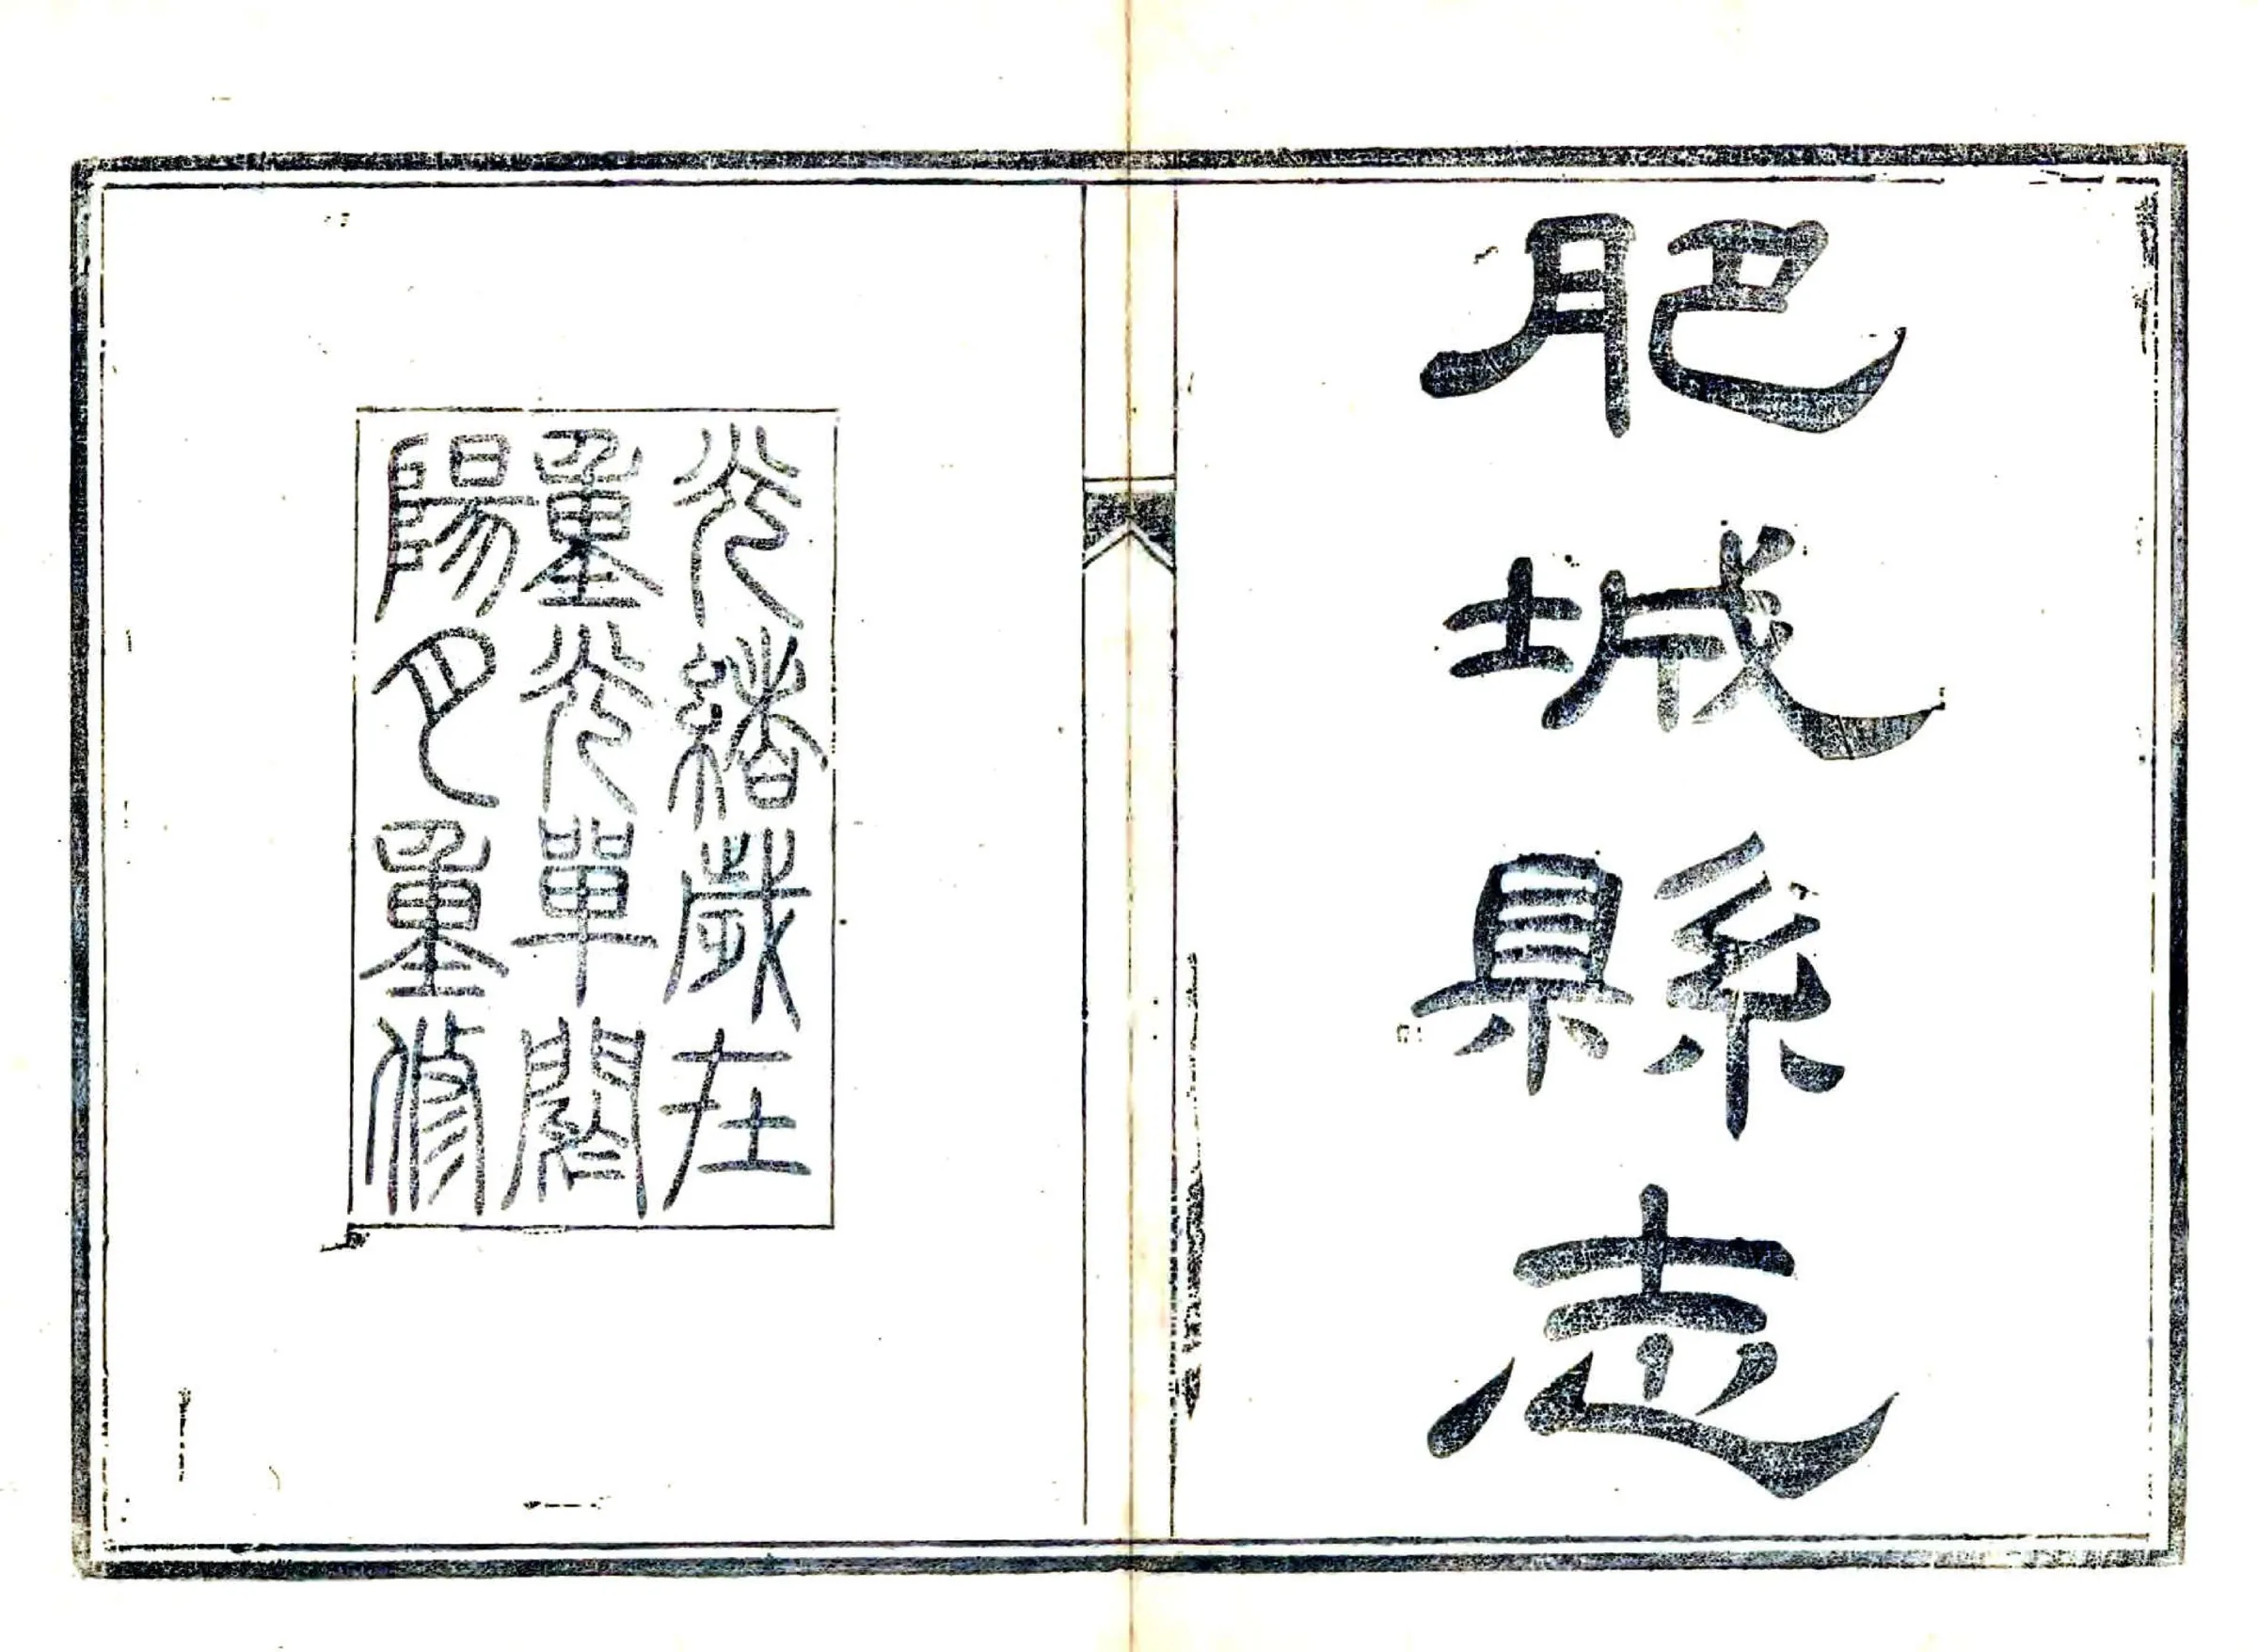 肥城縣志
光緒歲在
重光單閼
陽月重修